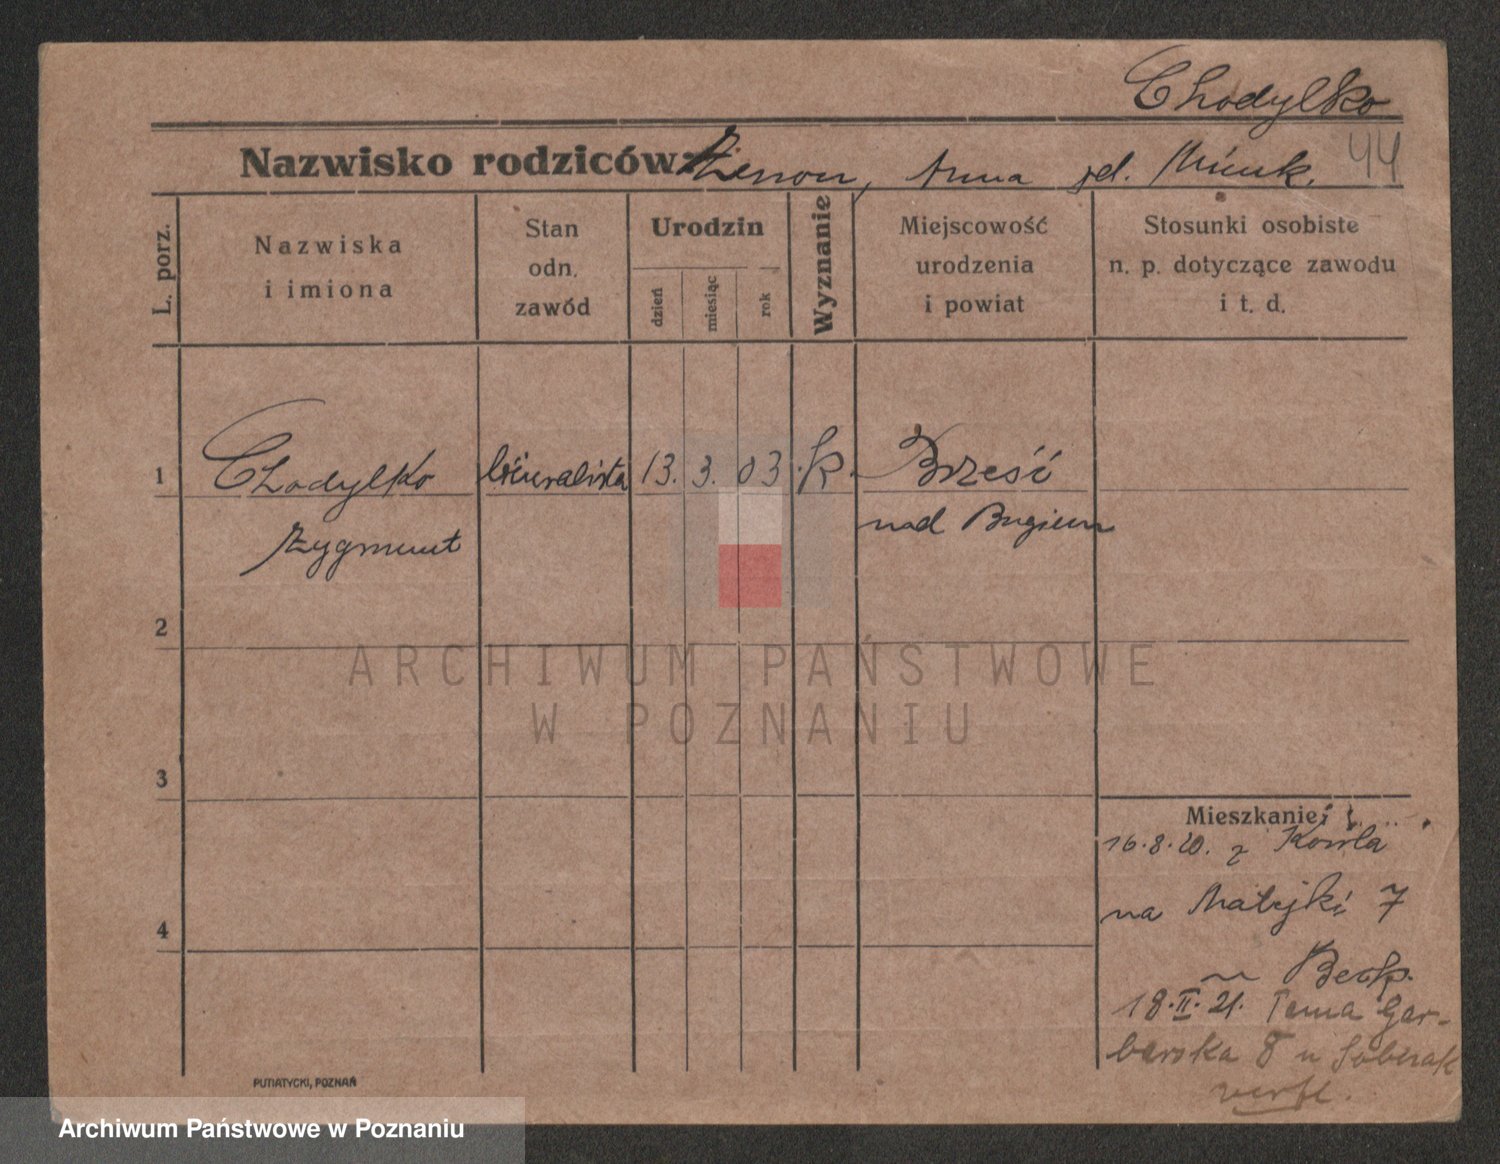 Chodylko
Nazwisko rodziców: Zenon, Anna
44
L. porz.
Nazwiska
i imiona
Stan
odn.
zawód
Urodzin
dzień
miesiąc
rok
Wyznanie
Miejscowość
urodzenia
i powiat
Stosunki osobiste
n. p. dotyczące zawodu
i t. d.
1
Chodylko
biuralista
13.
3.
03
k.
Brześć
Zygmunt
nad Bugiem
2
ARCHIWUM PAŃSTWOWE
W POZNANIU
3
Mieszkanie:
16.8.20. z Kowla
na Matejki 7
u
4
18.II.21. Tama Gar-
barska 8 u
PUTIATYCKI, POZNAŃ
Archiwum Państwowe w Poznaniu